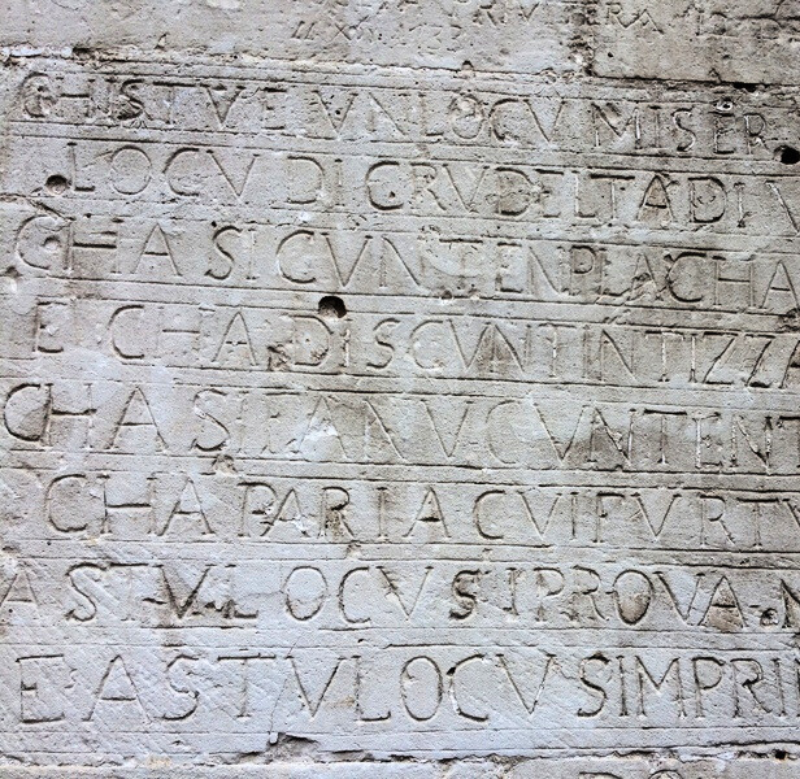 CHISTV E VN LOCV MISER
LOCV DI CRVDELTA DI V
CHA SI CVNTENPLA CHA
E CHA DISCVNTINTIZZA
CHA SI FA NV CVNTENT
CHA PARIA CVI FVRTV
ASTV LOCV SI PROVA
E ASTV LOCV SIMPRI